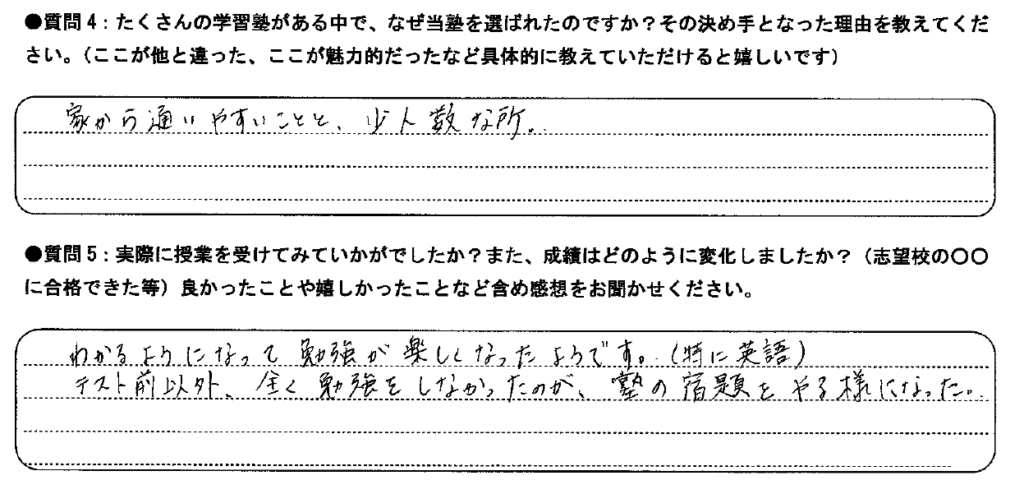 ●質問4：たくさんの学習塾がある中で、なぜ当塾を選ばれたのですか？その決め手となった理由を教えてくだ
さい。（ここが他と違った、ここが魅力的だったなど具体的に教えていただけると嬉しいです）
家から通いやすいことと、少人数な所。
●質問5：実際に授業を受けてみていかがでしたか？また、成績はどのように変化しましたか？（志望校の〇〇
に合格できた等）良かったことや嬉しかったことなど含め感想をお聞かせください。
わかるようになって勉強が楽しくなったようです。（特に英語）
テスト前以外、全く勉強をしなかったのが、塾の宿題をやる様になった。